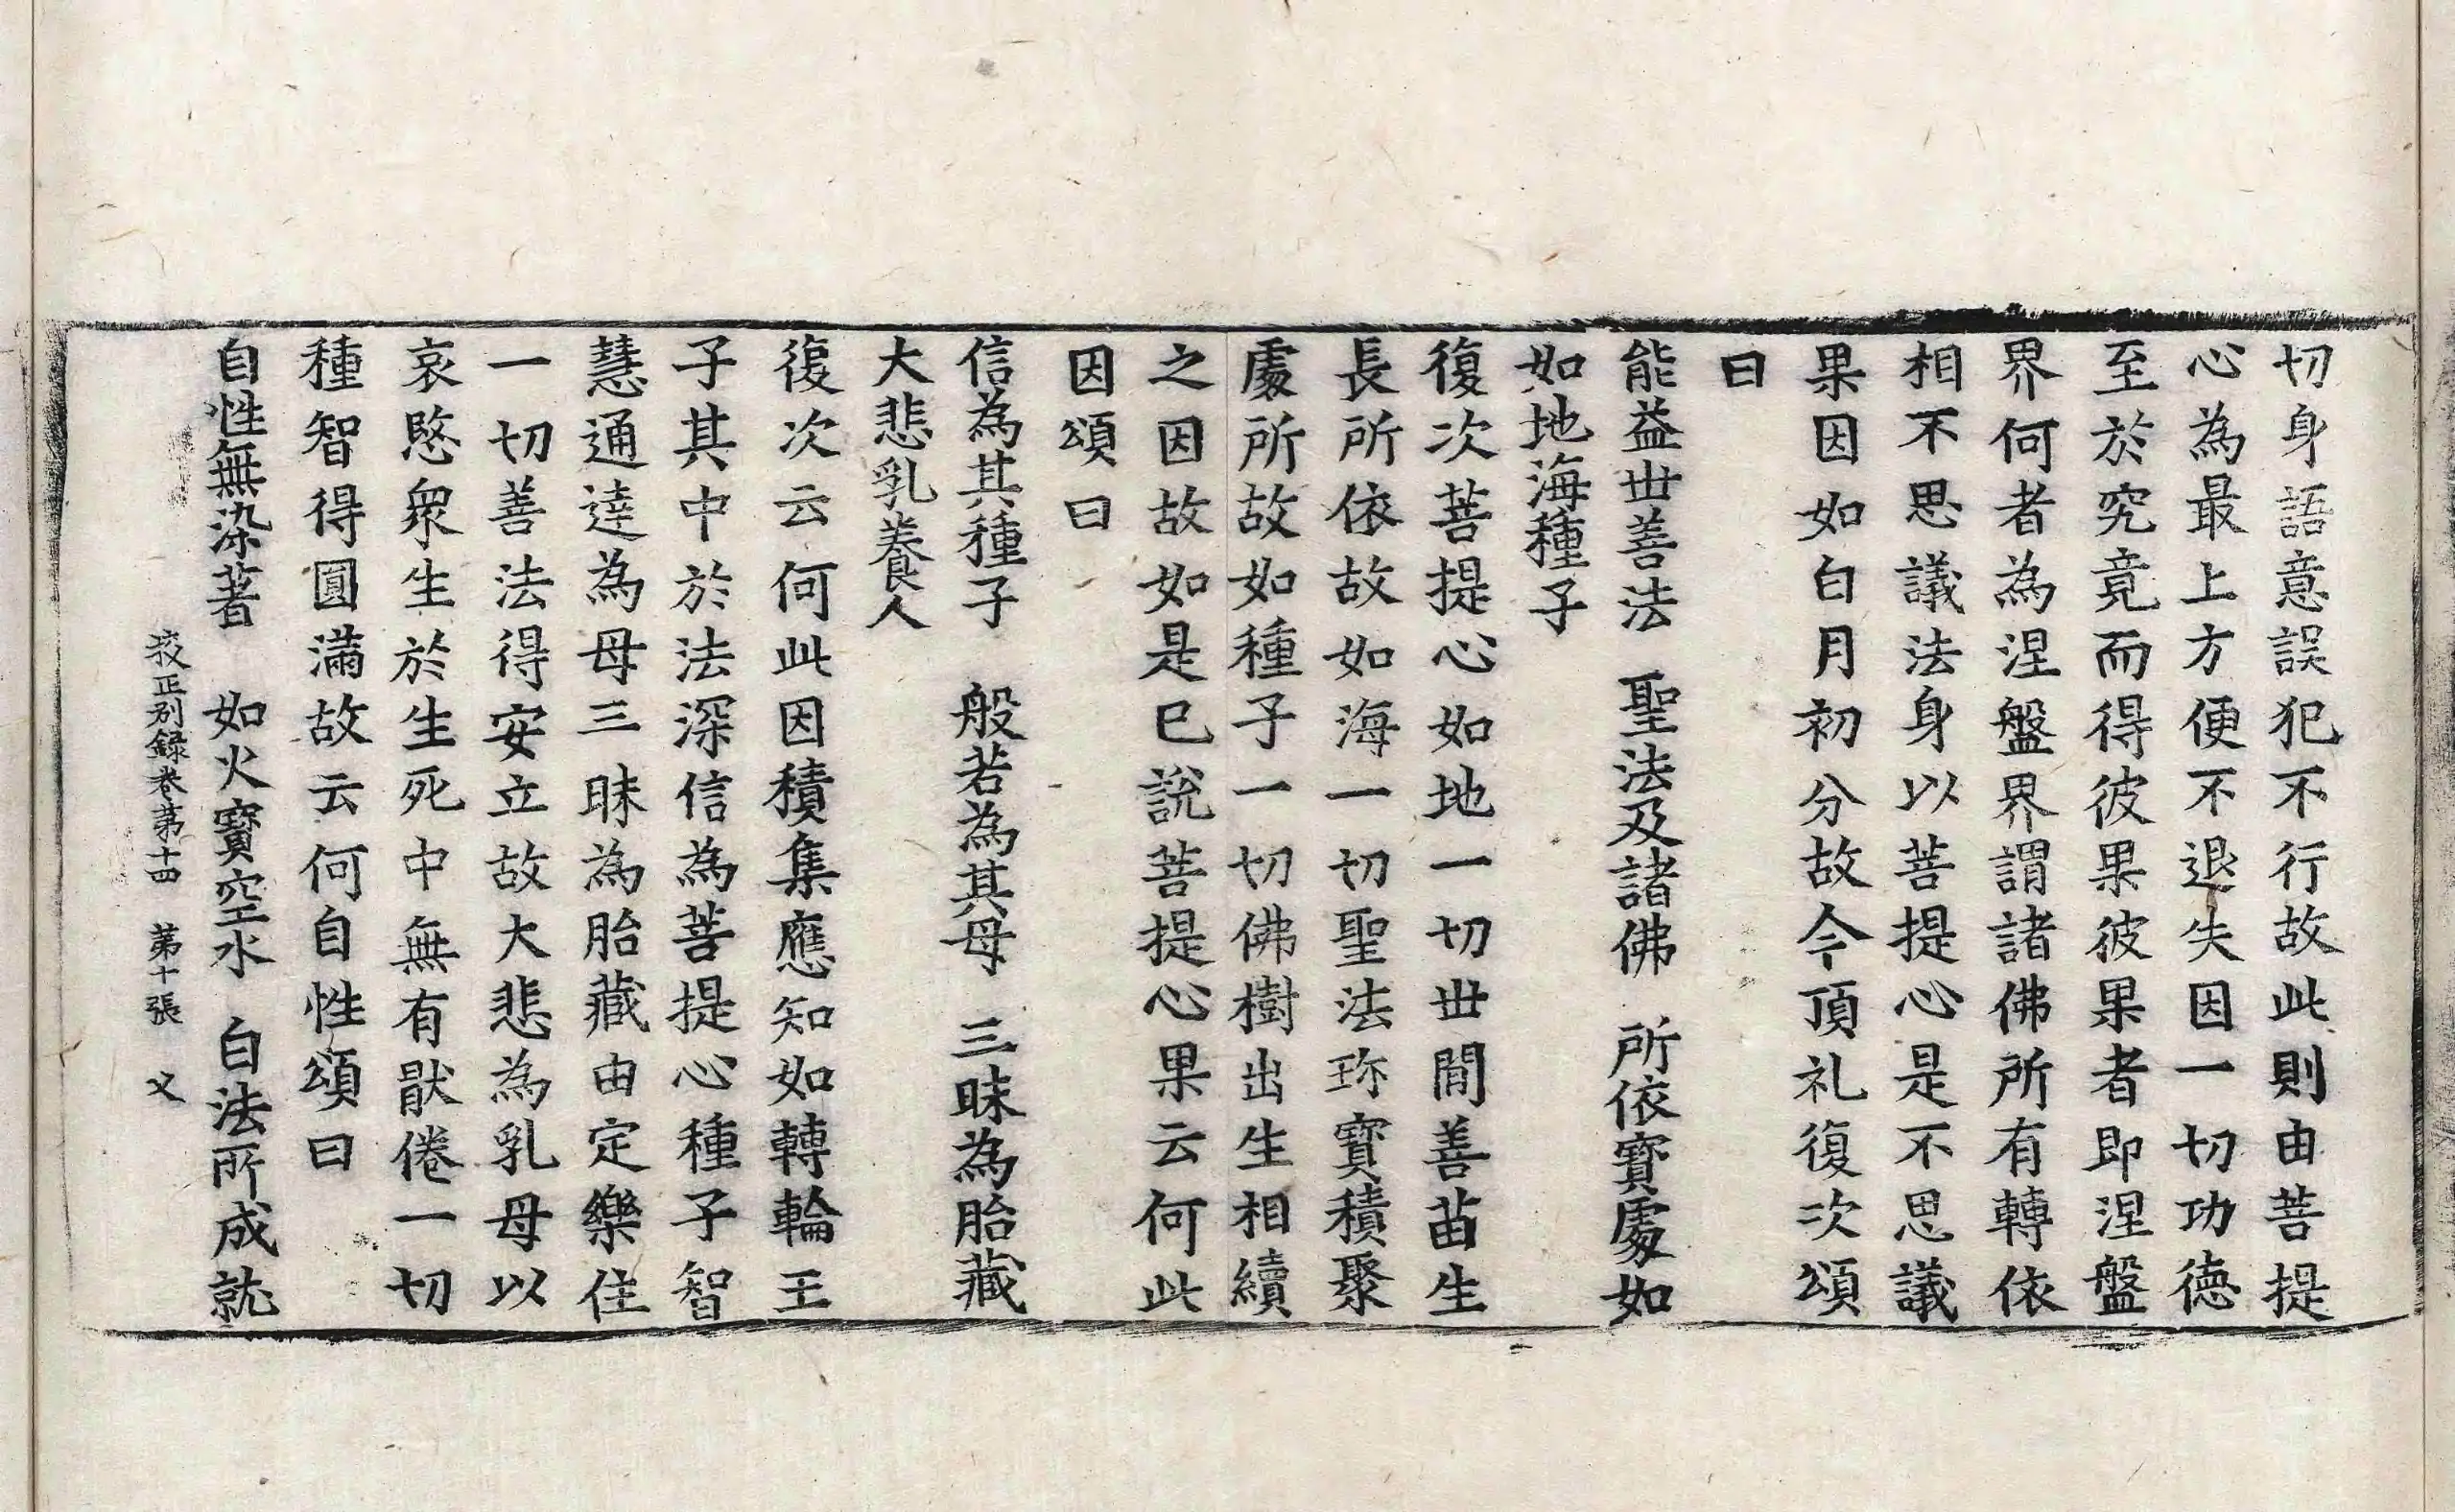 切身語意誤犯不行故此則由菩提
心為最上方便不退失因一切功德
至於究竟而得彼果彼果者即涅盤
界何者為涅盤界謂諸佛所有轉依
相不思議法身以菩提心是不思議
果因如白月初分故今頂礼復次頌
曰
能益世善法　聖法及諸佛　所依寶處如
如地海種子
復次菩提心如地一切世間善苗生
長所依故如海一切聖法珎寶積聚
處所故如種子一切佛樹出生相續
之因故如是已說菩提心果云何此
因頌曰
信為其種子　般若為其母　三昧為胎藏
大悲乳養人
復次云何此因積集應知如轉輪王
子其中於法深信為菩提心種子智
慧通達為母三昧為胎藏由定樂住
一切善法得安立故大悲為乳母以
哀愍衆生於生死中無有猒倦一切
種智得圓滿故云何自性頌曰
自性無染著　如火寶空水　白法所成就
挍正別錄卷苐十四　苐十張　义